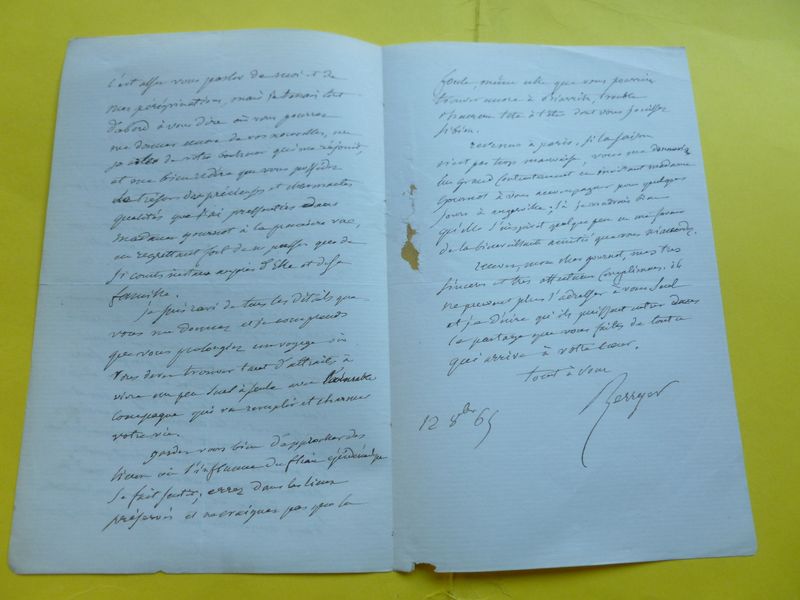 c'est assez vous parler de moi et de
mes pérégrinations, mais je tenais tout
d'abord à vous dire où vous pourrez
me donner encore de vos nouvelles, me
de votre bonheur qui me réjouit,
et me bien redire que vous possédez
le trésor des précieuses et charmantes
qualités que j'ai pressenties dans
madame gournot à la première vue,
en regrettant fort de ne passer que de
si courts instants auprès d'elle et de sa
famille.
je suis ravi de tous les détails que
vous me donnez et je comprends
que vous prolongiez un voyage où
vous devez trouver tant d'attraits à
vivre un peu seul à seule avec l'aimable
compagne qui va remplir et charmer
votre vie.
gardez vous bien d'approcher des
lieux où l'influence du fléau épidémique
se fait sentir; errez dans les lieux
préservés et ne craignez pas que la
foule, même celle que vous pourriez
trouver encore à biarritz, trouble
le tête à tête dont vous jouissez
si bien.
revenu à paris, si la saison
n'est pas trop mauvaise, vous me donnerez
un grand contentement en madame
gournot à vous accompagner pour quelques
jours à augerville; là je voudrais bien
qu'elle s'inspirât quelque peu en ma faveur
de la bienveillante amitié que vous
recevez, mon cher gournot, mes très
sincères et très affectueux compliments. ils
ne peuvent plus s'adresser à vous seul
et je désire qu'ils puissent entrer dans
le partage que vous faites de tout ce
qui arrive à votre cœur.
tout à vous
Berryer
12 8bre 65